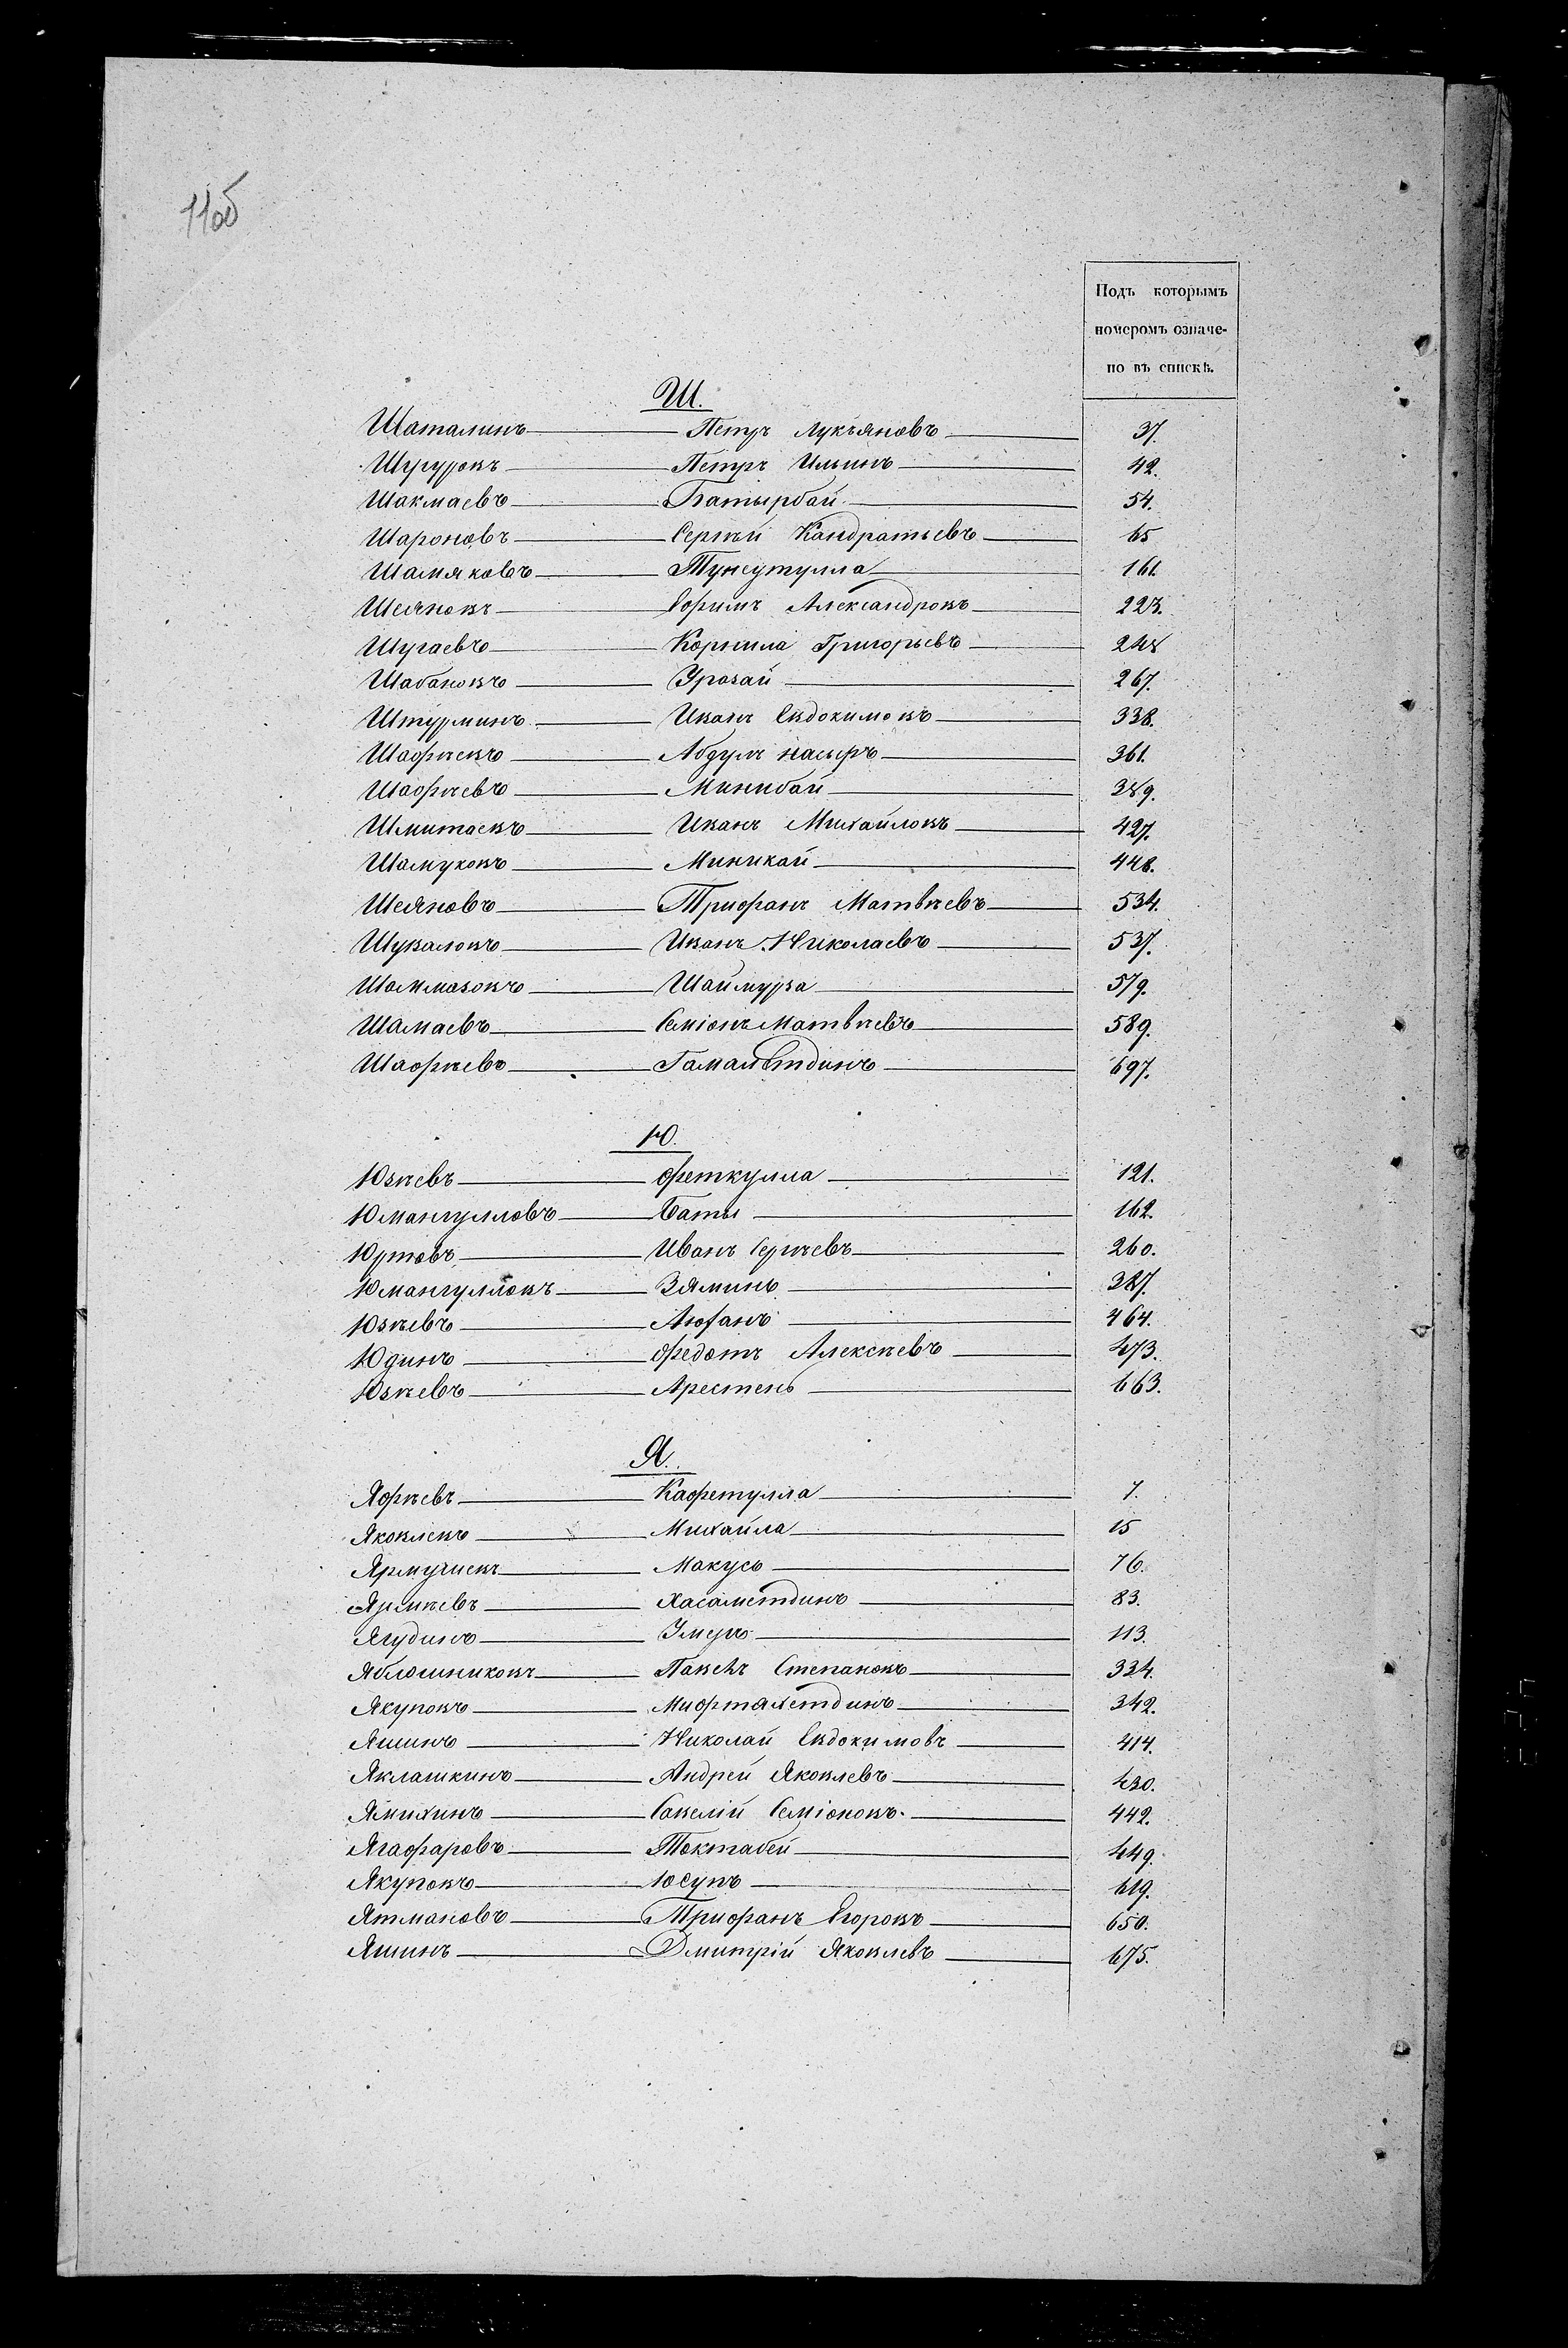 11об
Подъ которымъ
номеромъ означе-
но въ спискѣ.
Ш.
Шаталинъ Петръ Лукъяновъ 37.
Шугуровъ Петръ Ильинъ 42.
Шакмаевъ Батырбай 54.
Шароновъ Сергѣй Кандратьевъ 65
Шамяковъ 161.
Шеяновъ Ефимъ Александровъ 223.
Шугаевъ Корнила Григорьевъ 248
Шабановъ Уразай 267.
Штурминъ Иванъ Евдокимовъ 338.
Шафѣевъ Абдулъ насыръ 361.
Шафѣевъ Минибай 389.
Шмитаевъ Иванъ Михайловъ 427.
Шамуковъ Миникай 448.
Шеяновъ Трифанъ Матвѣевъ 534.
Шуваловъ Иванъ Николаевъ 537.
Шаммазовъ Шаймурза 579.
Шамаевъ Семіонъ Матвѣевъ 589.
Шафѣевъ Гамалѣтдинъ 697.
Ю.
Юзѣевъ Феткулла 121.
Юмангулловъ Баты 162.
Юртовъ Иванъ Сергѣевъ 260.
Юмангулловъ Зяминь 387.
Юзѣевъ Аюханъ 464.
Юдинъ Федотъ Алексѣевъ 473.
Юзѣевъ Арестень 663.
Я.
Яфѣевъ Кафетулла 7.
Яковлевъ Михайла 15
Ярмучиевъ Макусь 76.
Ярмѣевъ Хасаметдинъ 83.
Ягудинъ Умеръ 113.
Яблошниковъ Павелъ Степановъ 334.
Якуповъ Мифтахетдинъ 342.
Яшинъ Николай Евдокимовъ 414.
Яклашкинъ Андрей Яковлевъ 430.
Ямихинъ Савелій Семіоновъ. 442.
Ягафаровъ Токтабей 449.
Якуповъ Юсупъ 619.
Ятмановъ Трифанъ Егоровъ 650.
Яшинъ Дмитрій Яковлевъ 675.